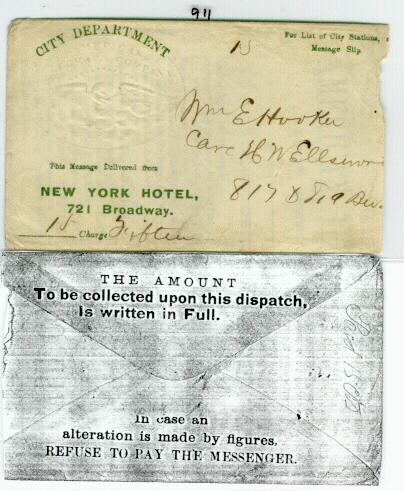 911
CITY DEPARTMENT
15
For List of City Stations,
Message Slip
Wm E Hooker
Care H W Ellswor
817 &
This Message Delivered from
NEW YORK HOTEL,
721 Broadway.
15 Charge Fifteen
THE AMOUNT
To be collected upon this dispatch,
Is written in Full.
In case an
alteration is made by figures,
REFUSE TO PAY THE MESSENGER.